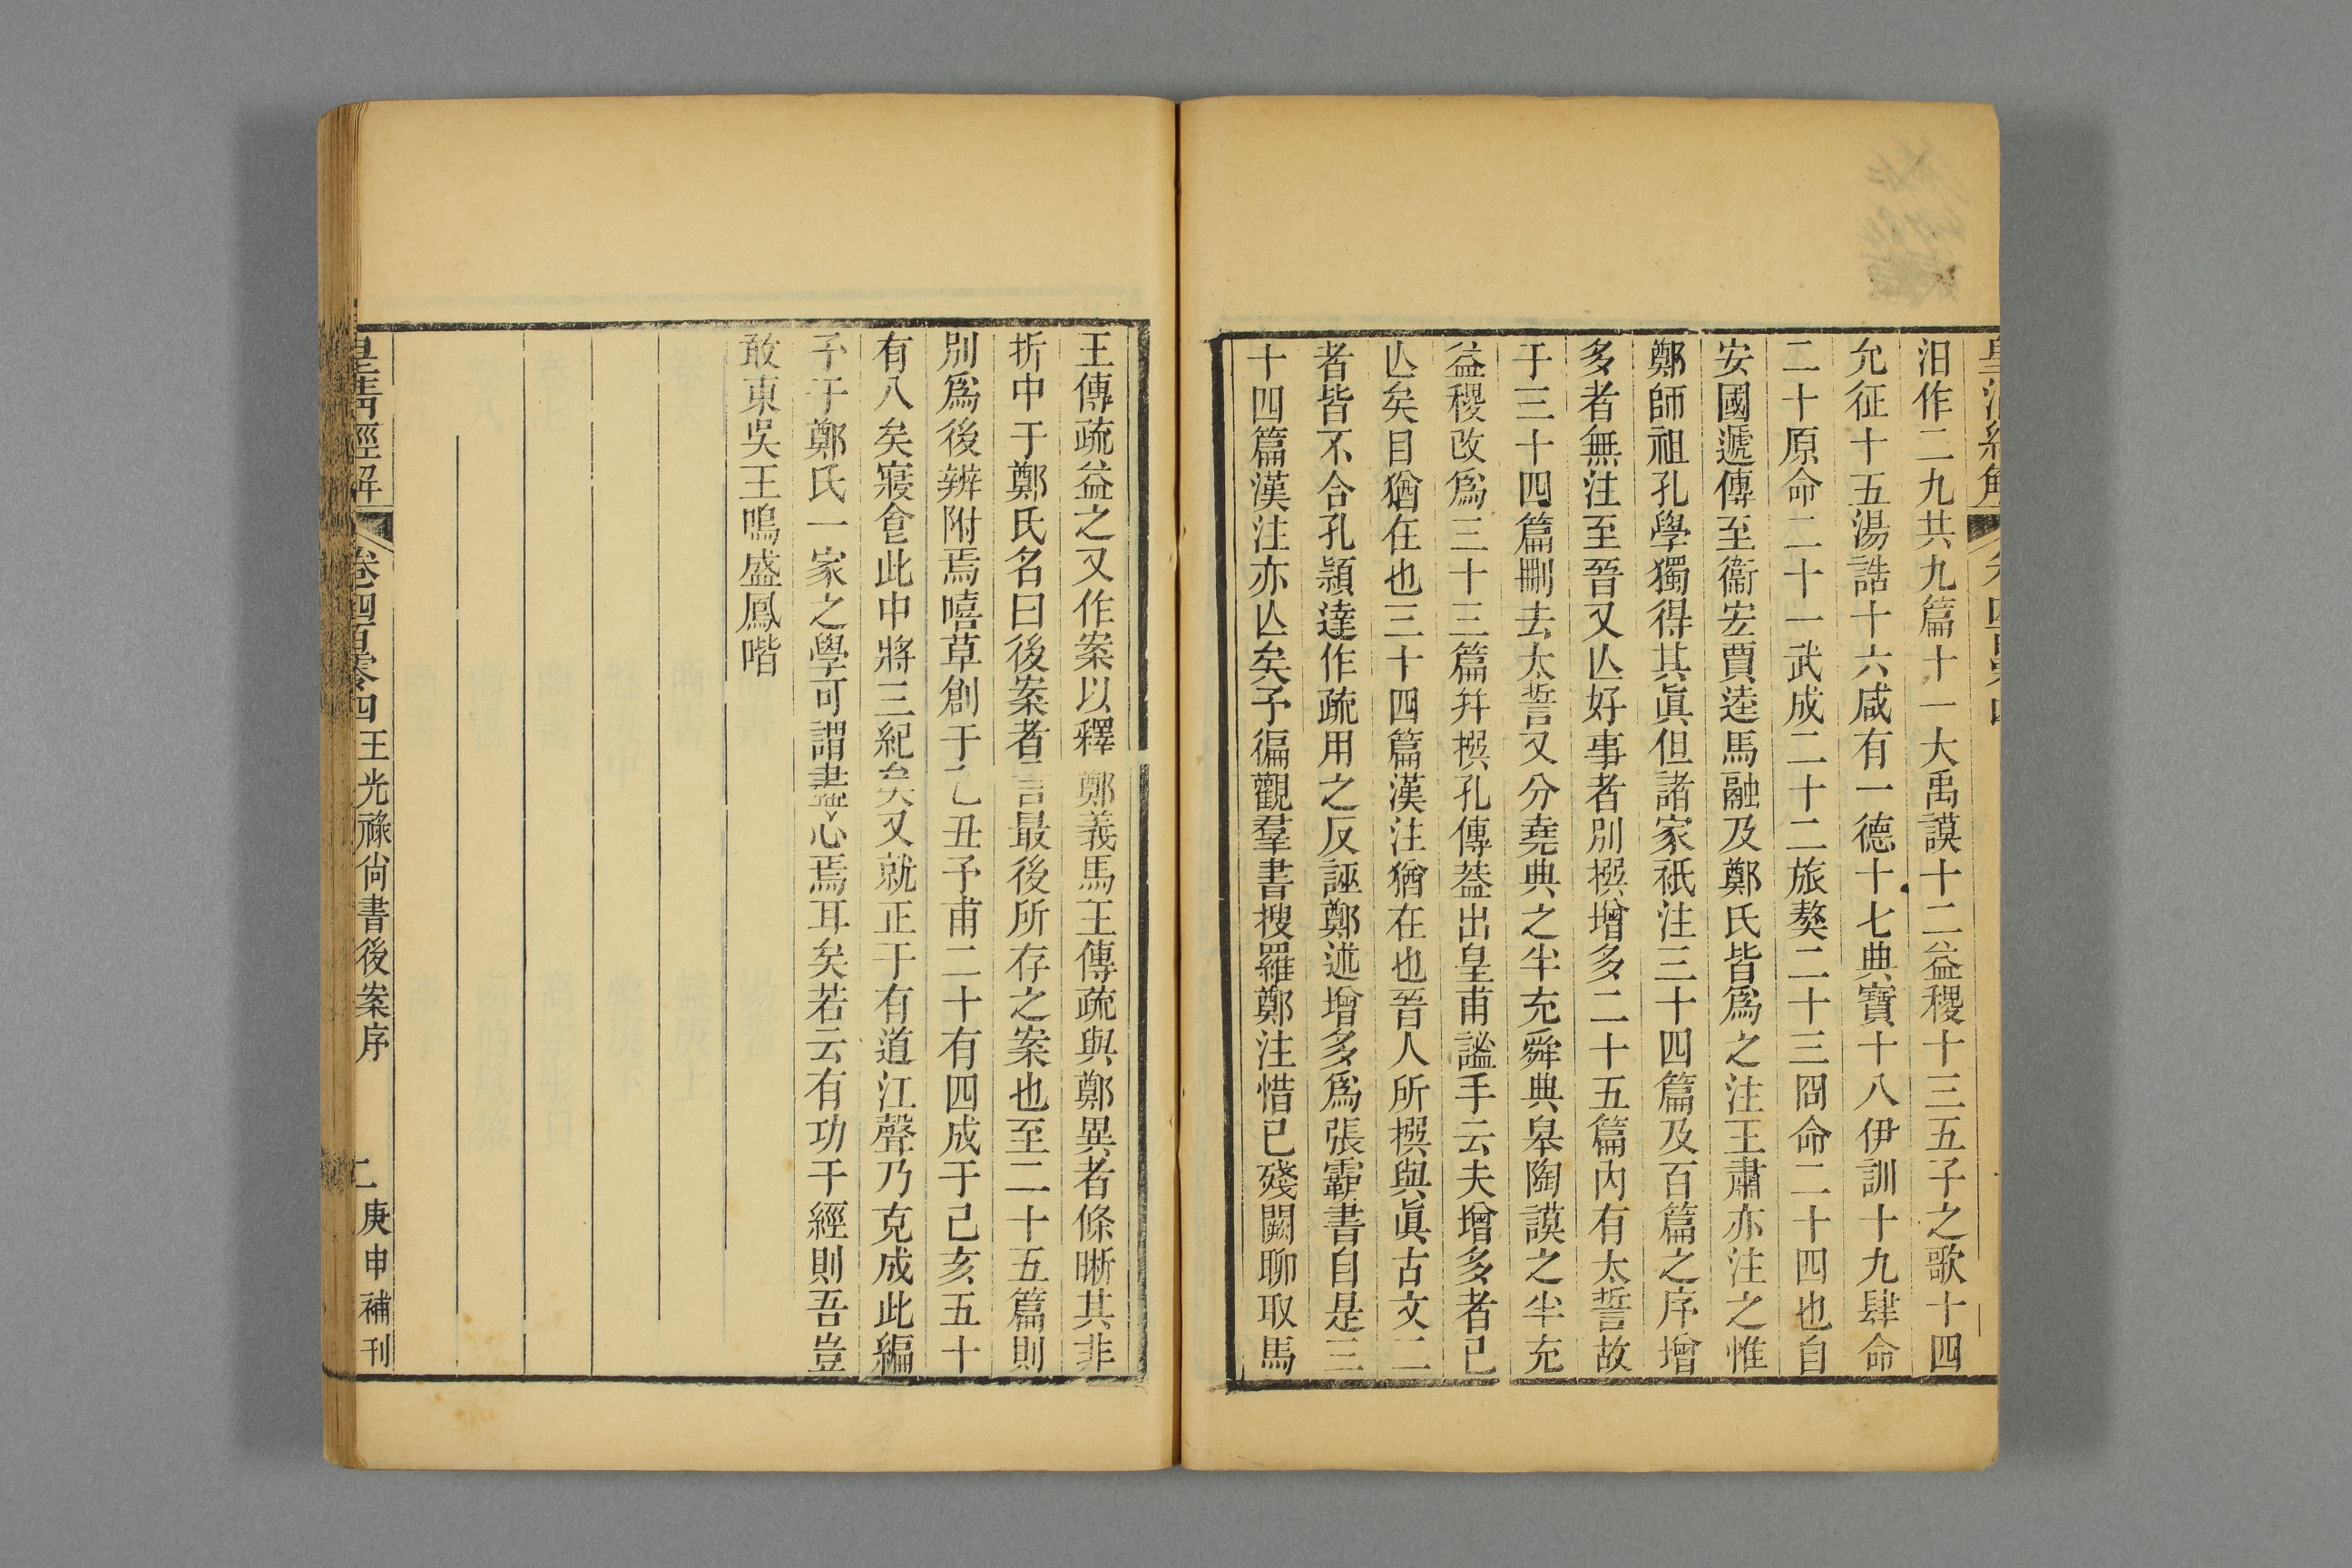 汨作二九共九篇十一大禹謨十二益稷十三五子之歌十四
允征十五湯誥十六咸有一德十七典寶十八伊訓十九肆命
二十原命二十一武成二十二旅獒二十三冏命二十四也自
安國遞傳至衞宏賈逵馬融及鄭氏皆爲之注王肅亦注之惟
鄭師祖孔學獨得其眞但諸家祇注三十四篇及百篇之序增
多者無注至晉又亾好事者別撰增多二十五篇內有太誓故
于三十四篇刪去太誓又分堯典之半充舜典臯陶謨之半充
益稷改爲三十三篇幷撰孔傳葢出皇甫謐手云夫增多者已
亾矣目猶在也三十四篇漢注猶在也晉人所撰與眞古文二
者皆不合孔穎達作疏用之反誣鄭述增多爲張霸書自是三
十四篇漢注亦亾矣予徧觀羣書搜羅鄭注惜已殘闕聊取馬
王傳疏益之又作案以釋鄭義馬王傳疏與鄭異者條晰其非
折中于鄭氏名曰後案者言最後所存之案也至二十五篇則
別爲後辨附焉嘻草創于乙丑予甫二十有四成于己亥五十
有八矣寢食此中將三紀矣又就正于有道江聲乃克成此編
予于鄭氏一家之學可謂盡心焉耳矣若云有功于經則吾豈
敢東吳王鳴盛鳳喈
皇清經解 卷四百零四王光祿尙書後案序 二 庚申補刊